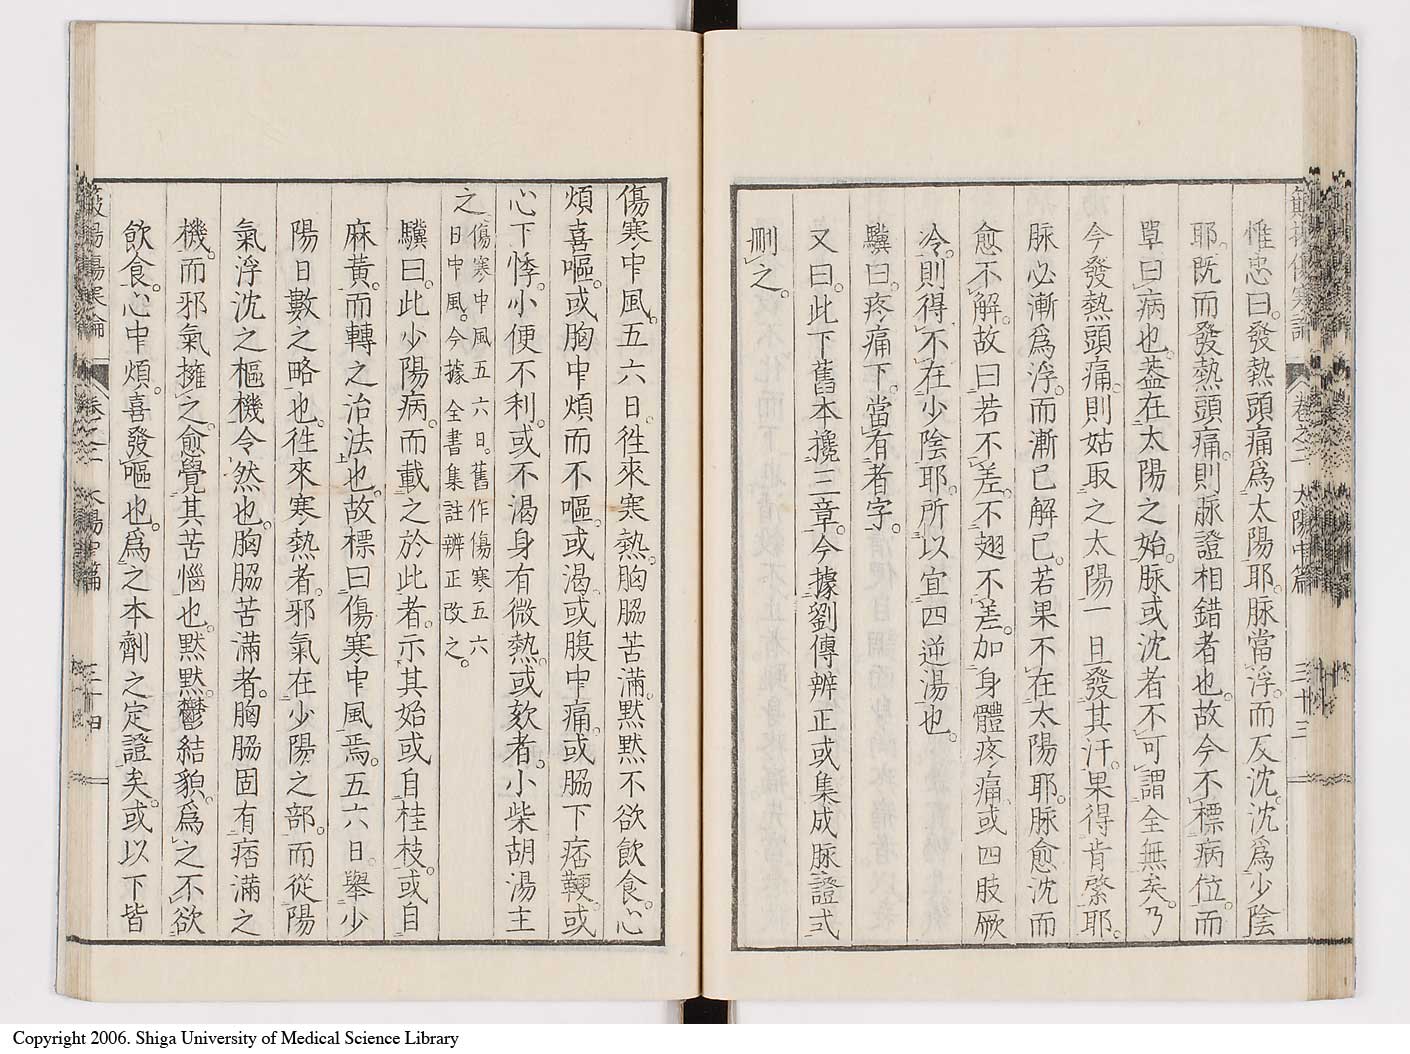 惟忠曰。發熱頭痛爲太陽耶。脉當浮。而反沈。沈爲少陰
耶。既而發熱頭痛。則脉證相錯者也。故今不標病位。而
單曰病也。葢在太陽之始。脉或沈者。不可謂全無矣。乃
今發熱頭痛。則姑取之太陽一旦發其汗。果得肯綮耶。
脉必漸爲浮。而漸已解已。若果不在太陽耶。脉愈沈而
愈不解。故曰若不差。不翅不差。加身體疼痛。或四肢厥
冷。則得不在少陰耶。所以宜四逆湯也。
驥曰。疼痛下。當有者字。
又曰。此下舊本攙三章。今據劉傳辨正或集成脉證式
刪之。
傷寒中風。五六日。徃來寒熱。胸脇苦滿。默默不欲飲食。心
煩喜嘔。或胸中煩而不嘔。或渴。或腹中痛。或脇下痞鞕。或
心下悸。小便不利。或不渴身有微熱。或欬者。小柴胡湯主
之。傷寒中風五六日。舊作傷寒五六
日中風。今據全書集註辨正改之。
驥曰。此少陽病。而載之於此者。示其始或自桂枝。或自
麻黃。而轉之治法也。故標曰傷寒中風焉。五六日。舉少
陽日數之略也。徃來寒熱者。邪氣在少陽之部。而從陽
氣浮沈之樞機令然也。胸脇苦滿者。胸脇固有痞滿之
機。而邪氣擁之。愈覺其苦惱也。默默。鬱結貌。爲之不欲
飲食。心中煩。喜發嘔也。爲之本劑之定證矣。或以下皆
卷之二 太陽中篇 三十三
Copyright 2006. Shiga University of Medical Science Library